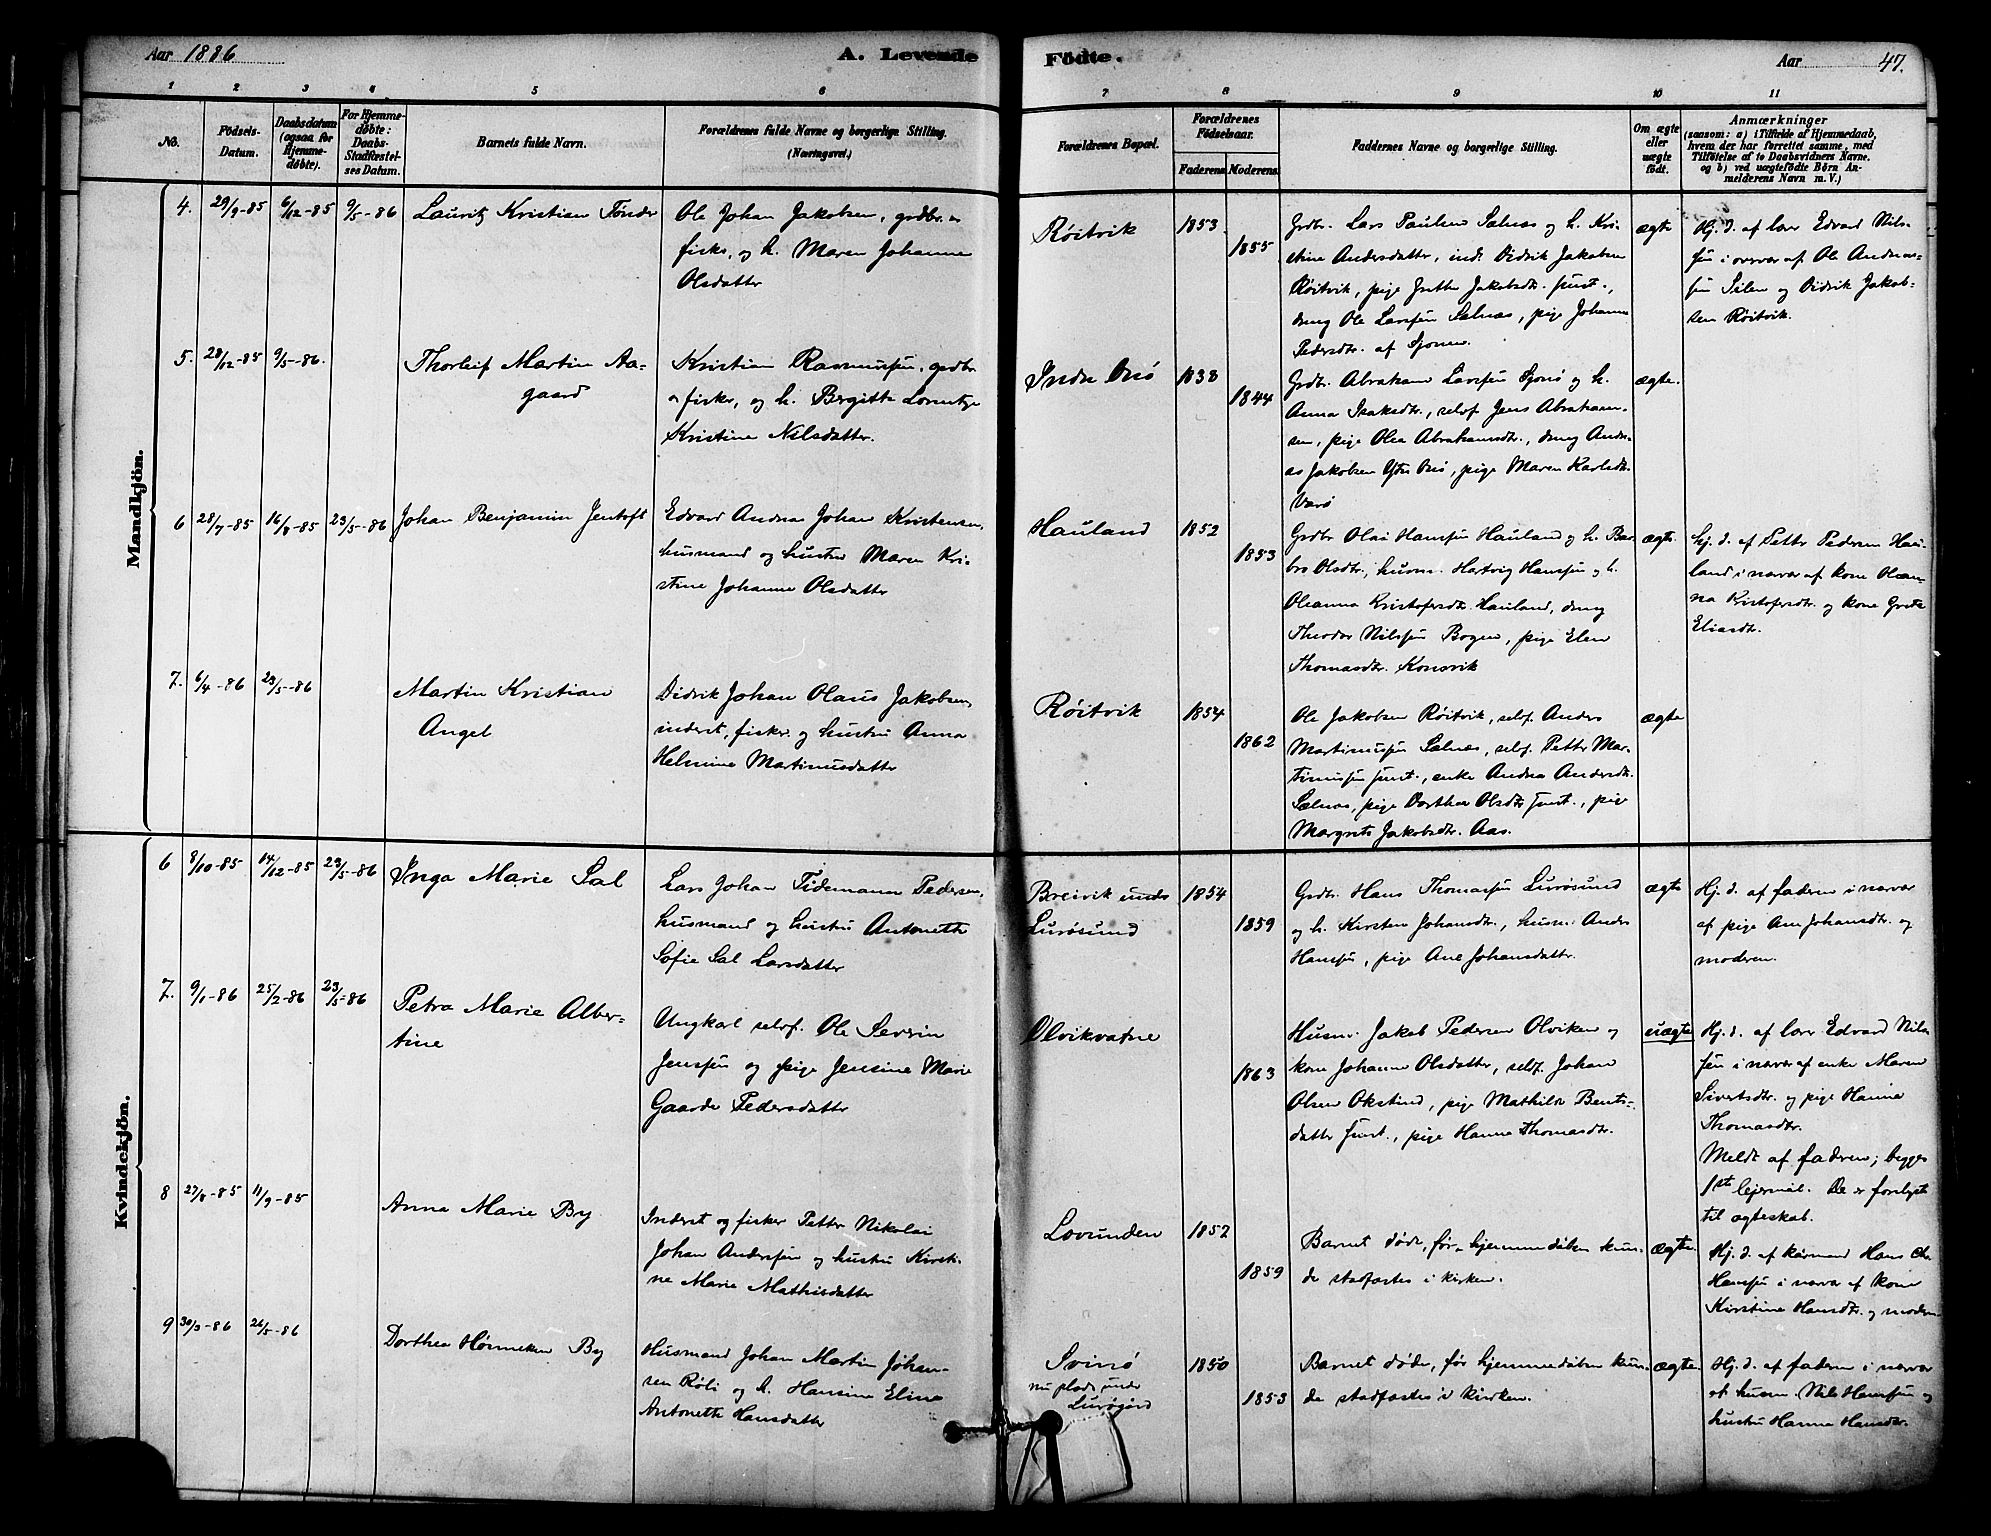 Aar 1886
A. Levende Födte.
Aar
47.
1 2 3 4 5 6 7 8 9 10 11
No.
Födsels-
Datum.
Daabsdatum
(ogsaa for
Hjemme-
døbte).
For Hjemme-
døbte:
Daabs-
Stadfæstel-
ses Datum.
Barnets fulde Navn.
Forældrenes fulde Navne og borgerlige Stilling.
(Næringsvei.)
Forældrenes Bopæl.
Forældrenes
Födselsaar.
Faderens. Moderens.
Faddernes Navne og borgerlige Stilling.
Om ægte
eller
uægte
født.
Anmærkninger
(saasom: a) i Tilfælde af Hjemmedaab,
hvem der har forrettet samme, med
Tilföielse af to Daabsvidners Navne.
og b) ved uægtefödte Börn An-
melderens Navn m. V.)
Mandkjön.
4. 29/9-85 6/12-85 9/5-86
Lauritz Kristian Tønder
Ole Johan Jakobsen, grdbr. &
fisker, og h. Maren Johanne
Olsdatter
Røitvik
1853
1855
Grdbr. Lars Paulsen Selnæs og h. Kri-
stine Andersdatter, inds. Didrik Jakobsen
Røitvik, pige Grethe Jakobsdtr.
dreng Ole Larssen Selnæs, pige Johanne
Pedersdtr. af Sjonen.
ægte
Hj. d. af lærer Edvard Nils-
sen i overvær af Ole Andreas-
sen Silen og Didrik Jakob-
sen Røitvik.
5. 28/12-85 9/5-86.
Thorleif Martin Aa-
gaard
Kristian Rasmussen, grdbr.
& fisker, og h. Bergitte Lorentze
Kristine Nilsdatter.
Indre Onø
1838
1844
Grdbr. Abraham Larssen Sjonø og h.
Anna Isaksdtr., selvf. Jens Abraham-
sen, pige Olea Abrahamsdtr., dreng Andre-
as Jakobsen Ytre Onø, pige Maren Karlsdtr.
Varø
ægte.
6 28/7-85 16/8-85 23/5-86
Johan Benjamin Jentoft
Edvard Andreas Johan Kristensen,
husmand og hustru Maren Kri-
stine Johanne Olsdatter
Hauland
1852
1853
Grdbr. Olai Hanssen Hauland og h. Bar-
bro Olsdtr., husm. Hartvig Hanssen og h.
Oleanna Kristofersdtr. Hauland, dreng
Theodor Nilssen Bogen, pige Elen
Thomasdtr. Konsvik
ægte.
Hj. d. af Petter Pedersen Hau-
land i nærvær af kone Olean-
na Kristofersdtr. og kone Grete
Eliasdtr.
7. 6/4-86 23/5-86
Martin Kristian
Angel
Didrik Johan Olaus Jakobsen,
inderst, fisker og hustru Anna
Helmine Martinusdatter
Røitvik
1854
1862
Ole Jakobsen Røitvik, selvf. Anders
Martinussen Selnæs, selvf. Petter Mar-
tinussen, enke Andrea Andersdtr.
Selnæs, pige Dorthea Olsdtr., pige
Margrete Jakobsdtr. Aas.
ægte
Kvindekjön.
6 8/10-85 14/12-85 23/5-86
Inga Marie Sal
Lars Johan Tidemann Pedersen,
husmand og hustru Antonette
Sofie Sal Larsdatter
Breivik under
Lurøsund
1854
1859
Grdbr. Hans Thomassen Lurøsund
og h. Kirsten Johansdtr., husm. Anders
Hanssen, pige Ane Johansdatter.
ægte
Hj. d. af faderen i nærvær
af pige Ane Johansdtr. og
moderen.
7. 9/1-86 25/2-86 23/5-86
Petra Marie Alber-
tine
Ungkarl selvf. Ole Severin
Jenssen og pige Jensine Marie
Gaarde Pedersdatter
Olvikvatne
1863
Husm. Jakob Pedersen Olviken og
kone Johanne Olsdatter, selvf. Johan
Olsen Okstind, pige Mathilde Bents-
datter, pige Hanna Thomasdtr.
uægte
Hj. d. af lærer Edvard Nils-
sen i nærvær af enke Maren
Sivertsdtr. og pige Hanna
Thomasdtr.
Meldt af faderen; begges
1ste lejermål. De er forlyst
til ægteskab.
8 27/8-85 11/9-85
Anna Marie By
Inderst og fisker Petter Nikolai
Johan Anderssen og hustru Kirsti-
ne Marie Mathisdatter
Lovunden
1852
1859
Barnet døde, før hjemmedåben kun-
de stadfæstes i kirken.
ægte.
Hj. d. af kårmand Hans Chr.
Hanssen i nærvær af kone
Kirstine Hansdtr. og moderen
9 30/3-86 26/5-86
Dorthea Hønneken By
Husmand Johan Martin Johan-
sen Røli og h. Hansine Eline
Antonette Hansdatter
Svinø
nu plads under
Lurøgård
1850
1853
Barnet døde, før hjemmedåben kun-
de stadfæstes i kirken.
ægte.
Hj. d. af faderen i nærvær
af husm. Nils Hanssen og
hustru Hanna Hansdtr.